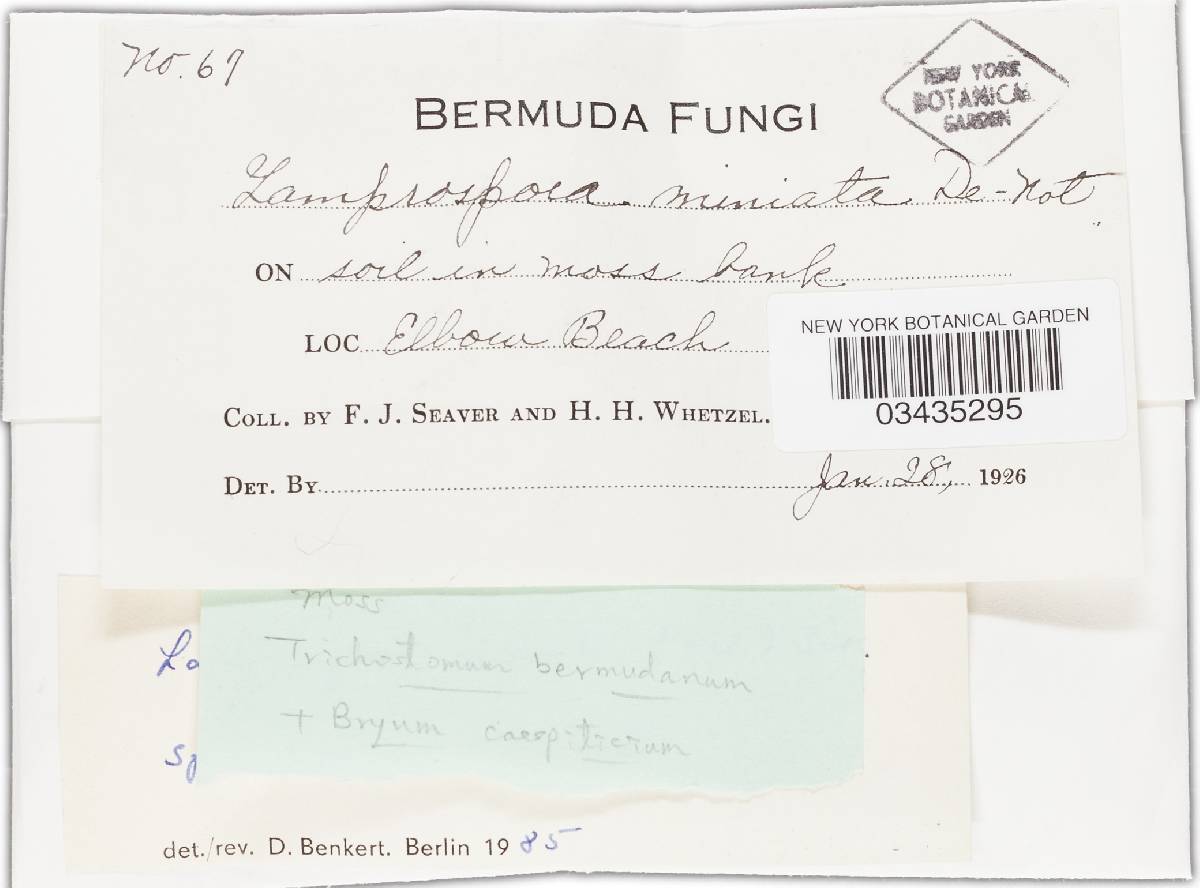 No. 67
NEW YORK
BOTANICAL
GARDEN
BERMUDA FUNGI
Lamprospora miniata De-Not
ON soil in moss bank
LOC Elbow Beach
NEW YORK BOTANICAL GARDEN
03435295
COLL. BY F. J. SEAVER AND H. H. WHETZEL.
DET. BY Jan. 28, 1926
Moss
La
Trichostomum bermudanum
+ Bryum caespiticium
sp
det./rev. D. Benkert. Berlin 1985